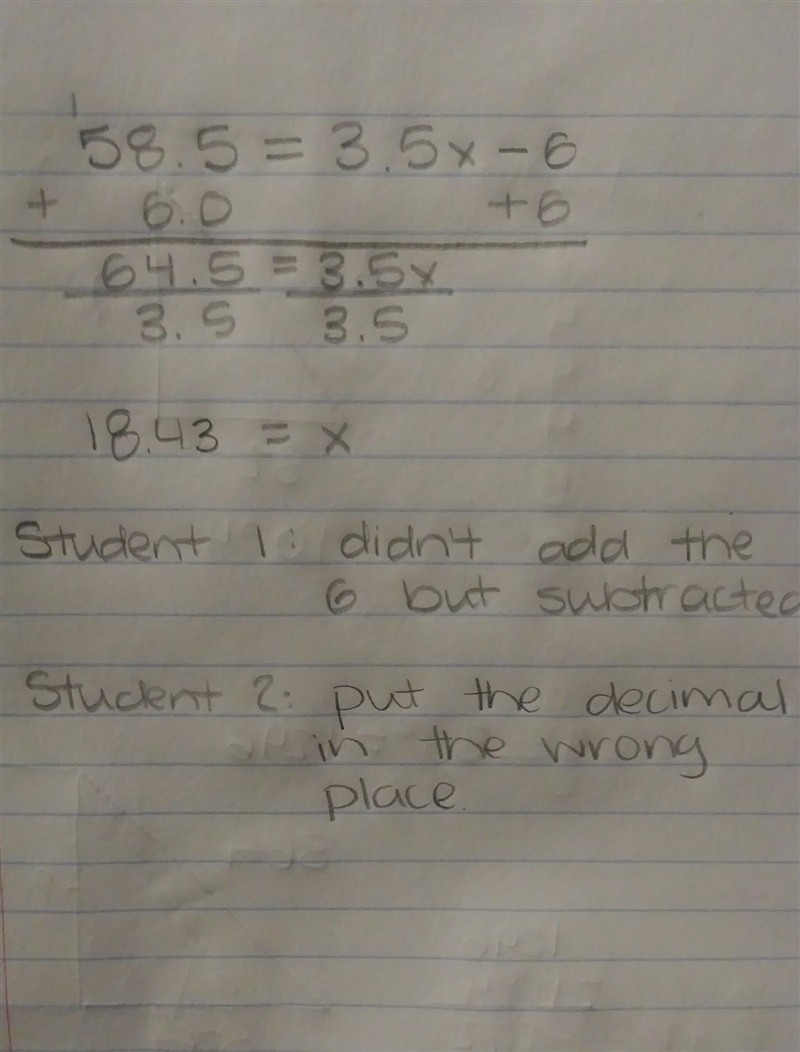 1
58.5 = 3.5x - 6
+ 6.0 +6
64.5 = 3.5x
3.5 3.5
18.43 = x
Student 1: didn't add the
6 but subtracted
Student 2: put the decimal
in the wrong
place.